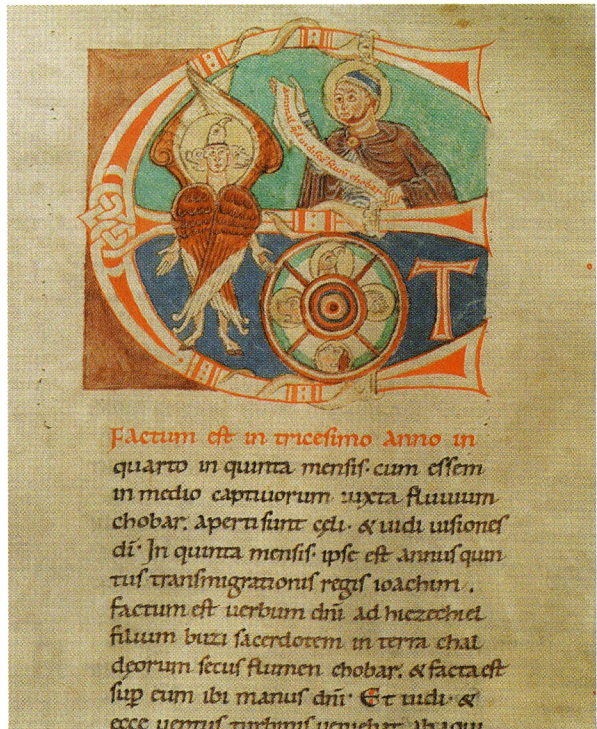 ET
Factum eſt in triceſimo anno in
quarto in quinta menſis· cum eſſem
in medio captiuorum iuxta fluuium
chobar. aperti ſunt cęli· & uidi uiſiones
dī· In quinta menſis· ipſe eſt annus quin
tus tranſmigrationis regis ioachim.
factum eſt uerbum dn̄i ad hiezechiel
filium buzi ſacerdotem in terra chal
deorum ſecus flumen chobar. & facta eſt
ſup̄ eum ibi manus dn̄i· Et uidi· &
ecce uentus turbinis ueniebat ab aqui